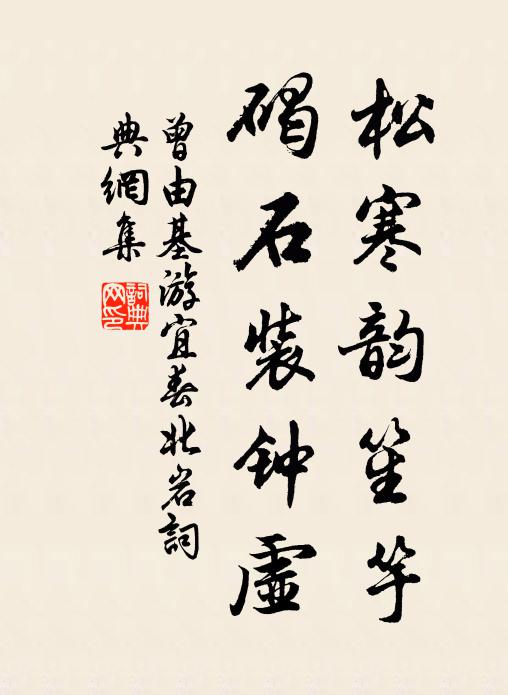 松寒韵笙竽
碣石装钟虚
曾由基游宜春北岩詞
典網集
詞典网印